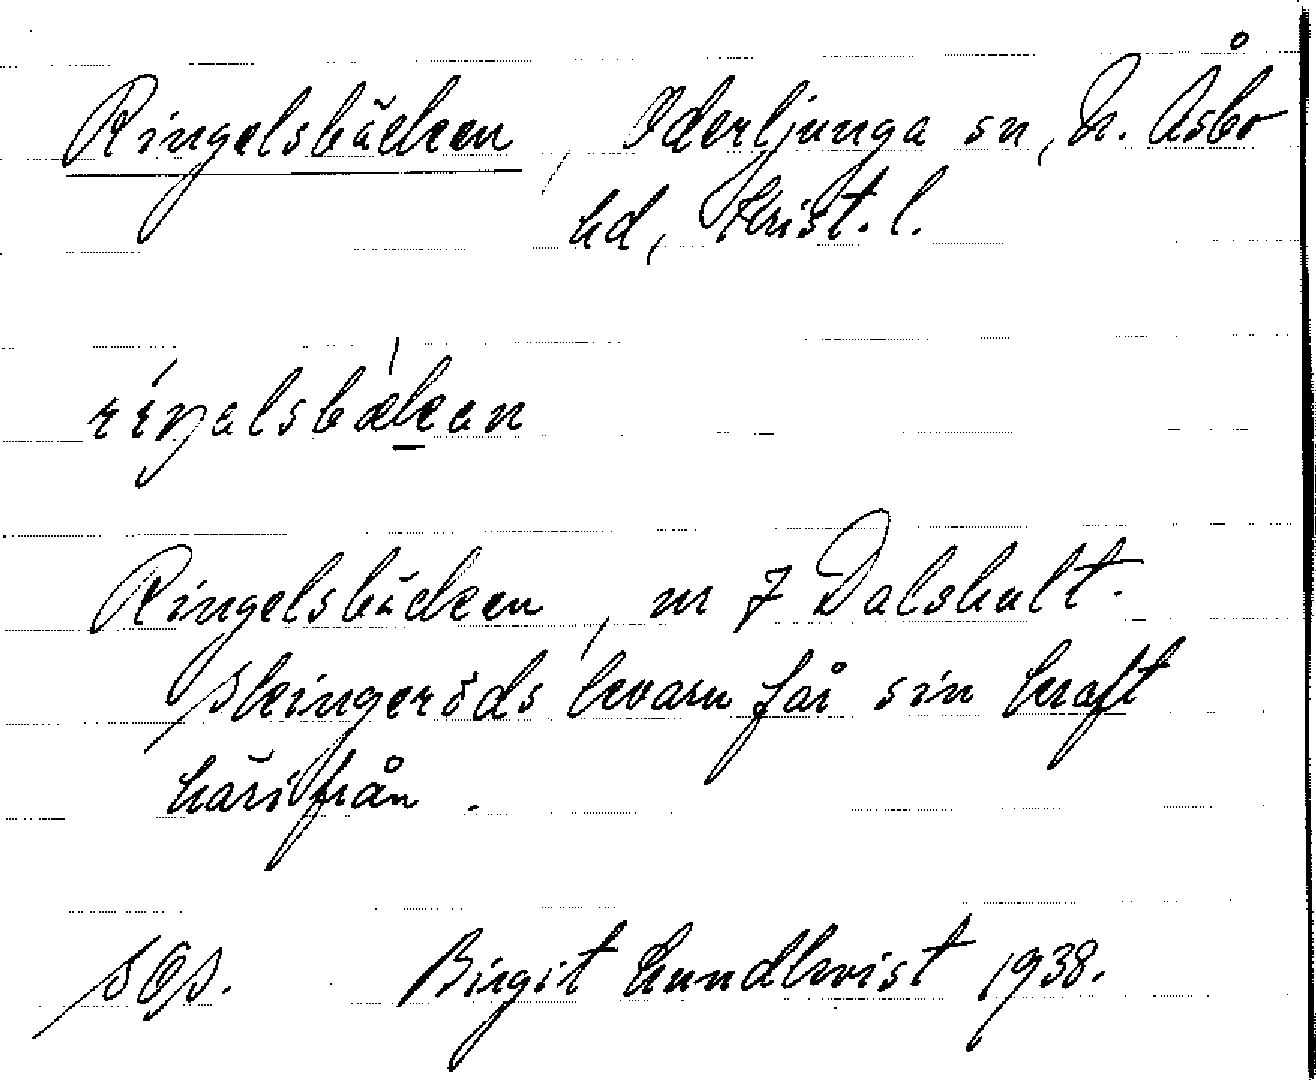 Ringelsbäcken, Oderljunga sn, N. Åsbo
hd, Krist. l.
ríŋəlsbækən
Ringelsbäcken, nr 7 Dalshult.
Skingeröds kvarn får sin kraft
härifrån.
SOS. Birgit Lundkvist 1938.